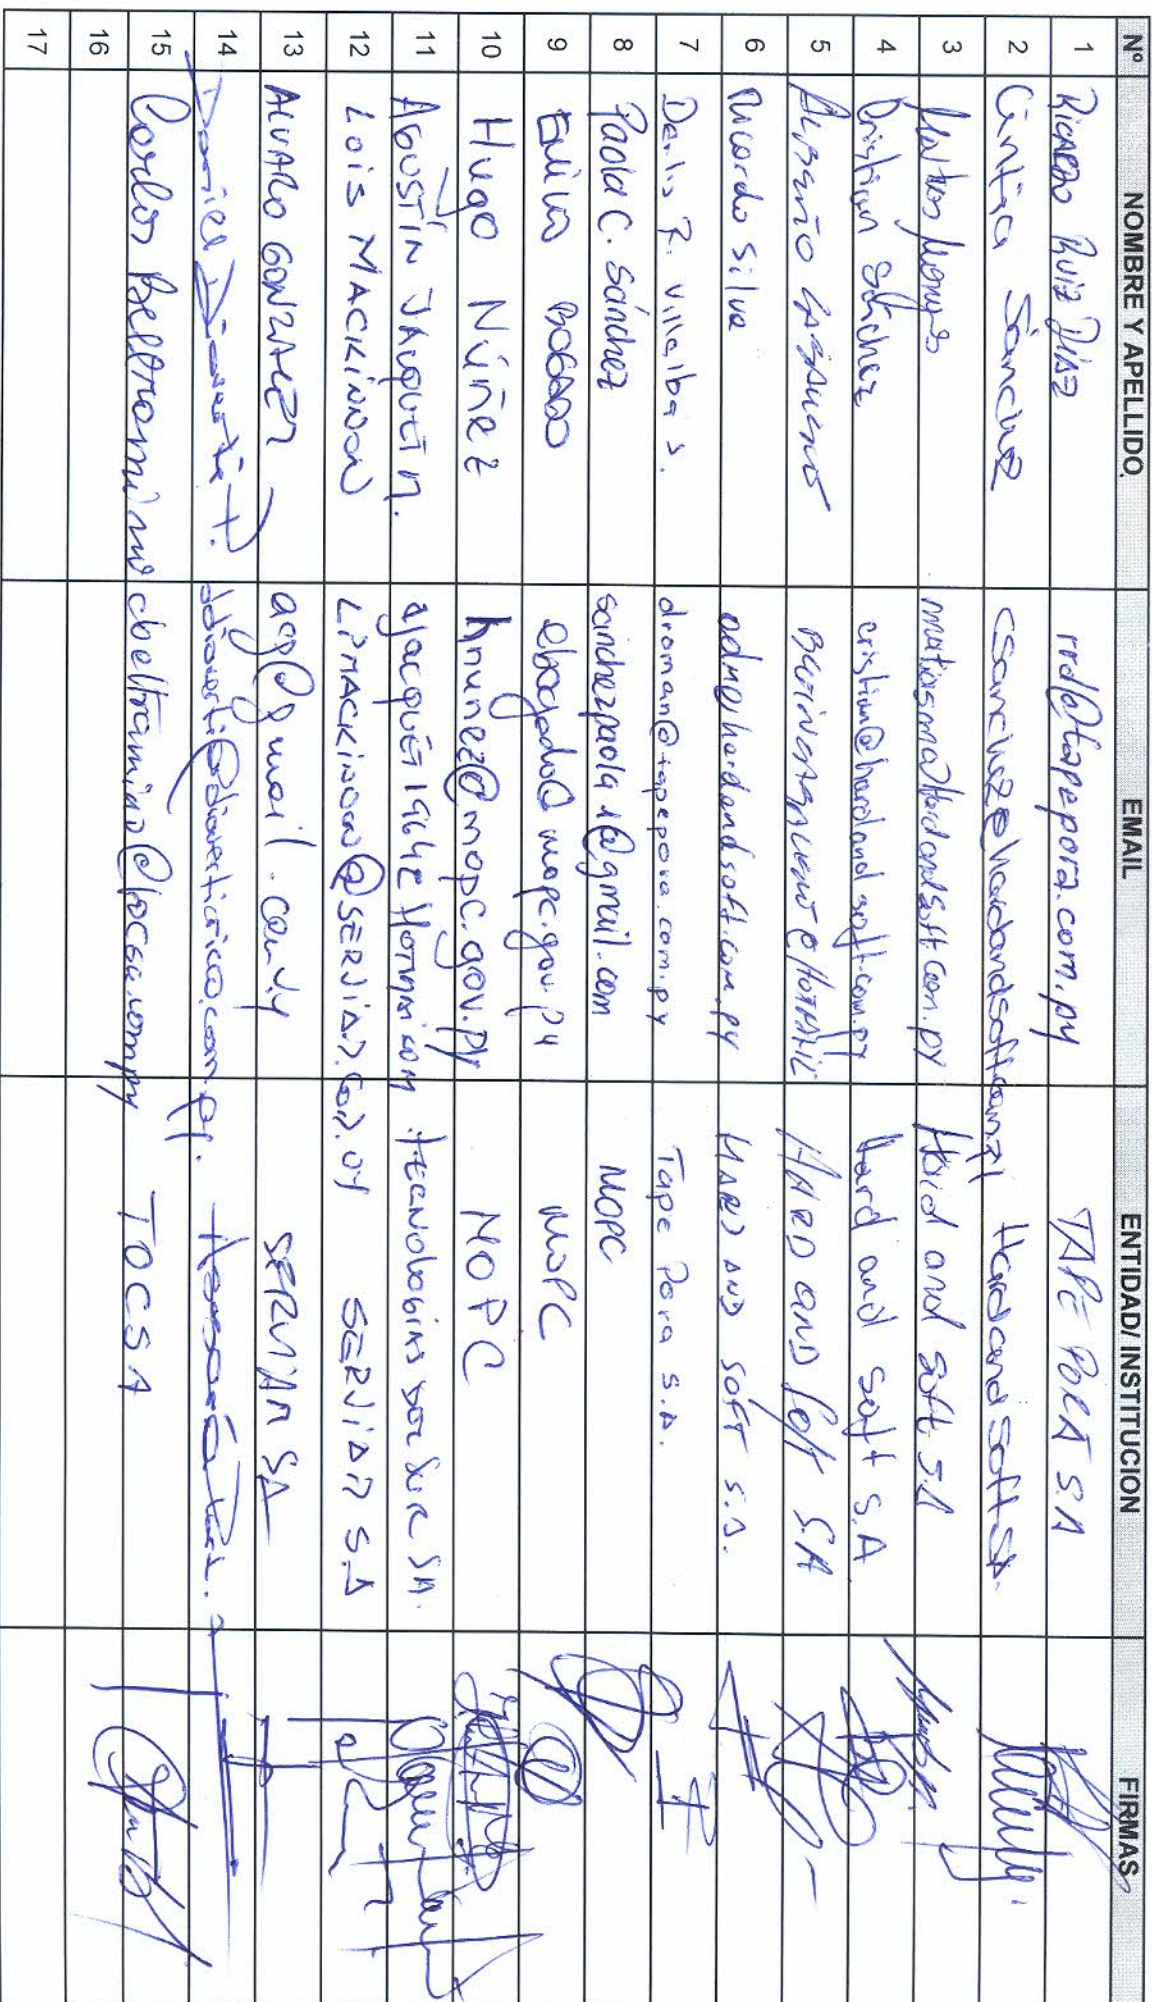 Nº NOMBRE Y APELLIDO EMAIL ENTIDAD/ INSTITUCION FIRMAS
1 RICARDO RUIZ DIAZ rrd@tapepora.com.py TAPE PORA S.A
2 Cintia Sanchez csanchez@hardandsoft.com.py Hard and Soft SA.
3 Matias matiasm@hardandsoft.com.py Hard and Soft S.A
4 Cristian Sanchez cristian@hardandsoft.com.py Hard and Soft S.A
5 HARD AND Soft S.A
6 Ricardo Silva adm@hardandsoft.com.py HARD AND SOFT S.A.
7 Derlis R. Villalba S. droman@tapepora.com.py Tape Pora S.A.
8 Paola C. Sánchez sanchezpaola1@gmail.com MOPC
9 Emilio BOGADO ebogado@mopc.gov.py MOPC
10 Hugo Núñez hnunez@mopc.gov.py MOPC
11 AGUSTÍN JACQUET M. TECNOLOGIAS DEL SUR SA.
12 LUIS MACKINNON SERVIAM S.A
13 ALVARO GONZALEZ SERVIAM SA
14 Daniel
15 Carlos Beltramino cbeltramino@tocsa.com.py TOCSA
16
17